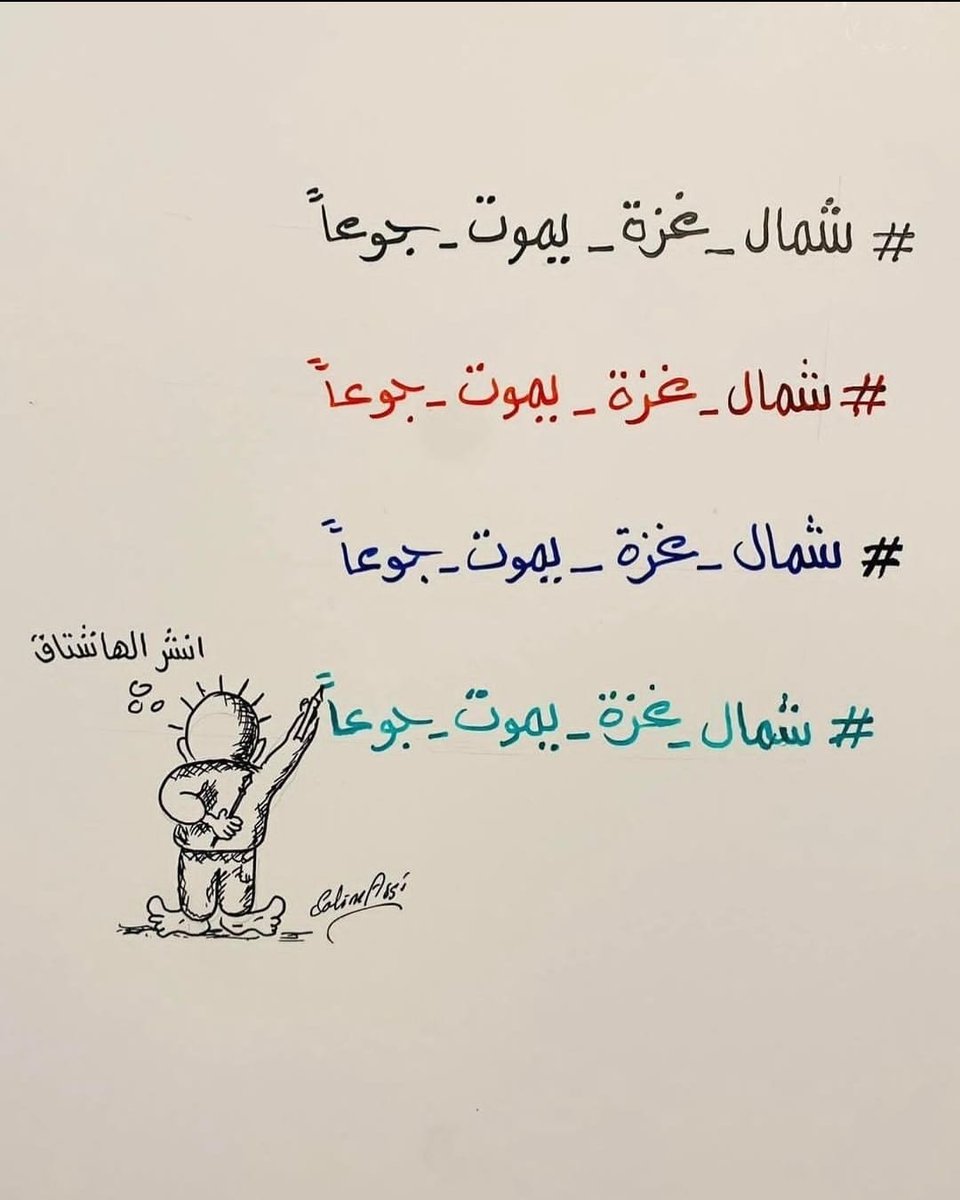 #شمال_غزة_يموت_جوعاً
#شمال_غزة_يموت_جوعاً
#شمال_غزة_يموت_جوعاً
انشر الهاشتاق
#شمال_غزة_يموت_جوعاً
Celine Assi